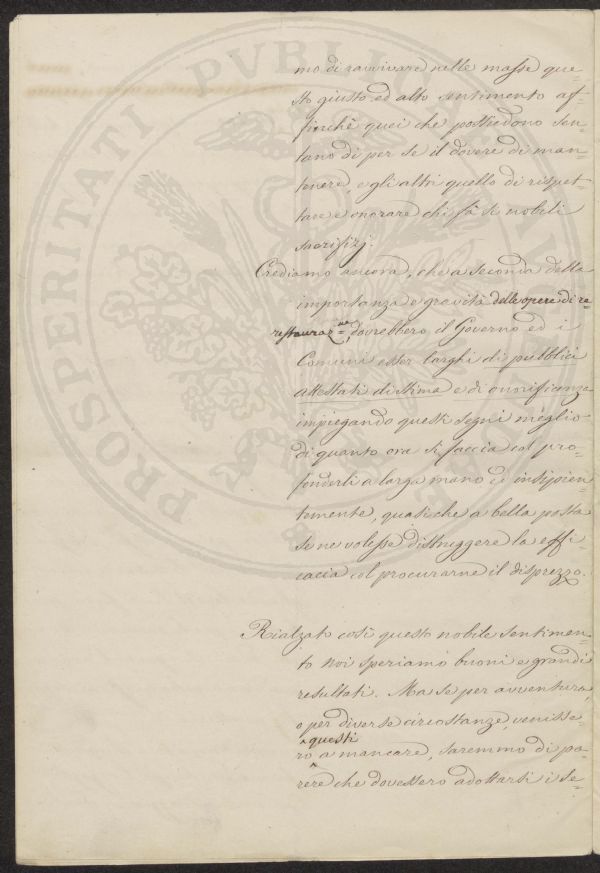 PROSPERITATI PVBLICAE AVGENDAE
mo di ravvivare nelle masse que=
sto giusto ed alto sentimento af=
finchè quei che possiedono sen=
tano di per se il dovere di man=
tenere e gli altri quello di rispet=
tare e onorare chi fà sì nobili
sacrifizj.
Crediamo ancora, che a seconda della
importanza e gravità delle opere di re=
restauraz.ne, dovrebbero il Governo ed i
Comuni esser larghi di pubblici
attestati di stima e di onorificenze
impiegando questi segni meglio
di quanto ora si faccia col pro=
fonderli a larga mano ed insipien=
temente, quasi che a bella posta
se ne volesse distruggere la effi=
cacia col procurarne il disprezzo.
Rialzato così questo nobile sentimen=
to noi speriamo buoni e grandi
resultati. Ma se per avventura,
e per diverse circostanze, venisse=
questi
ro a mancare, saremmo di pa=
rere che dovessero adottarsi i se=